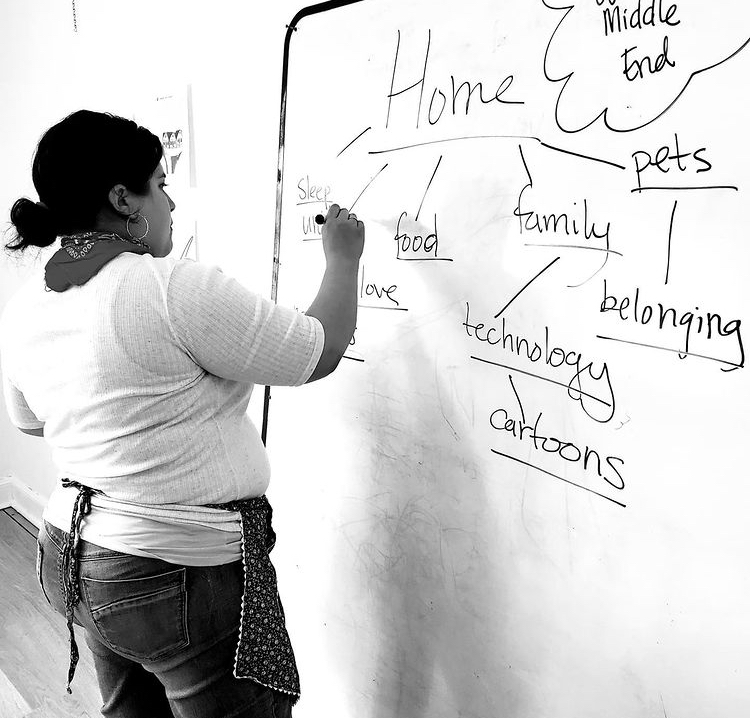 Middle
End
Home
pets
Sleep
family
food
belonging
love
technology
cartoons